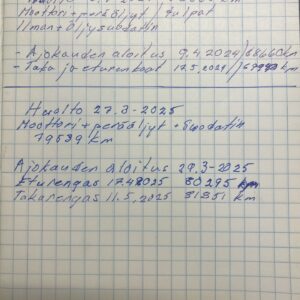 Moottori + peräöljyt / tulpat
Ilman + Öljysuodatin
- Ajokauden aloitus 9.4.2024/68660km
- Taka ja eturenkaat 17.5.2024/ km
Huolto 27.3-2025
Moottori + peräöljyt + Suodatin
79539 km
Ajokauden aloitus 29.3-2025
Eturengas 17.4.2025 80295 km
Takarengas 11.5.2025 81851 km